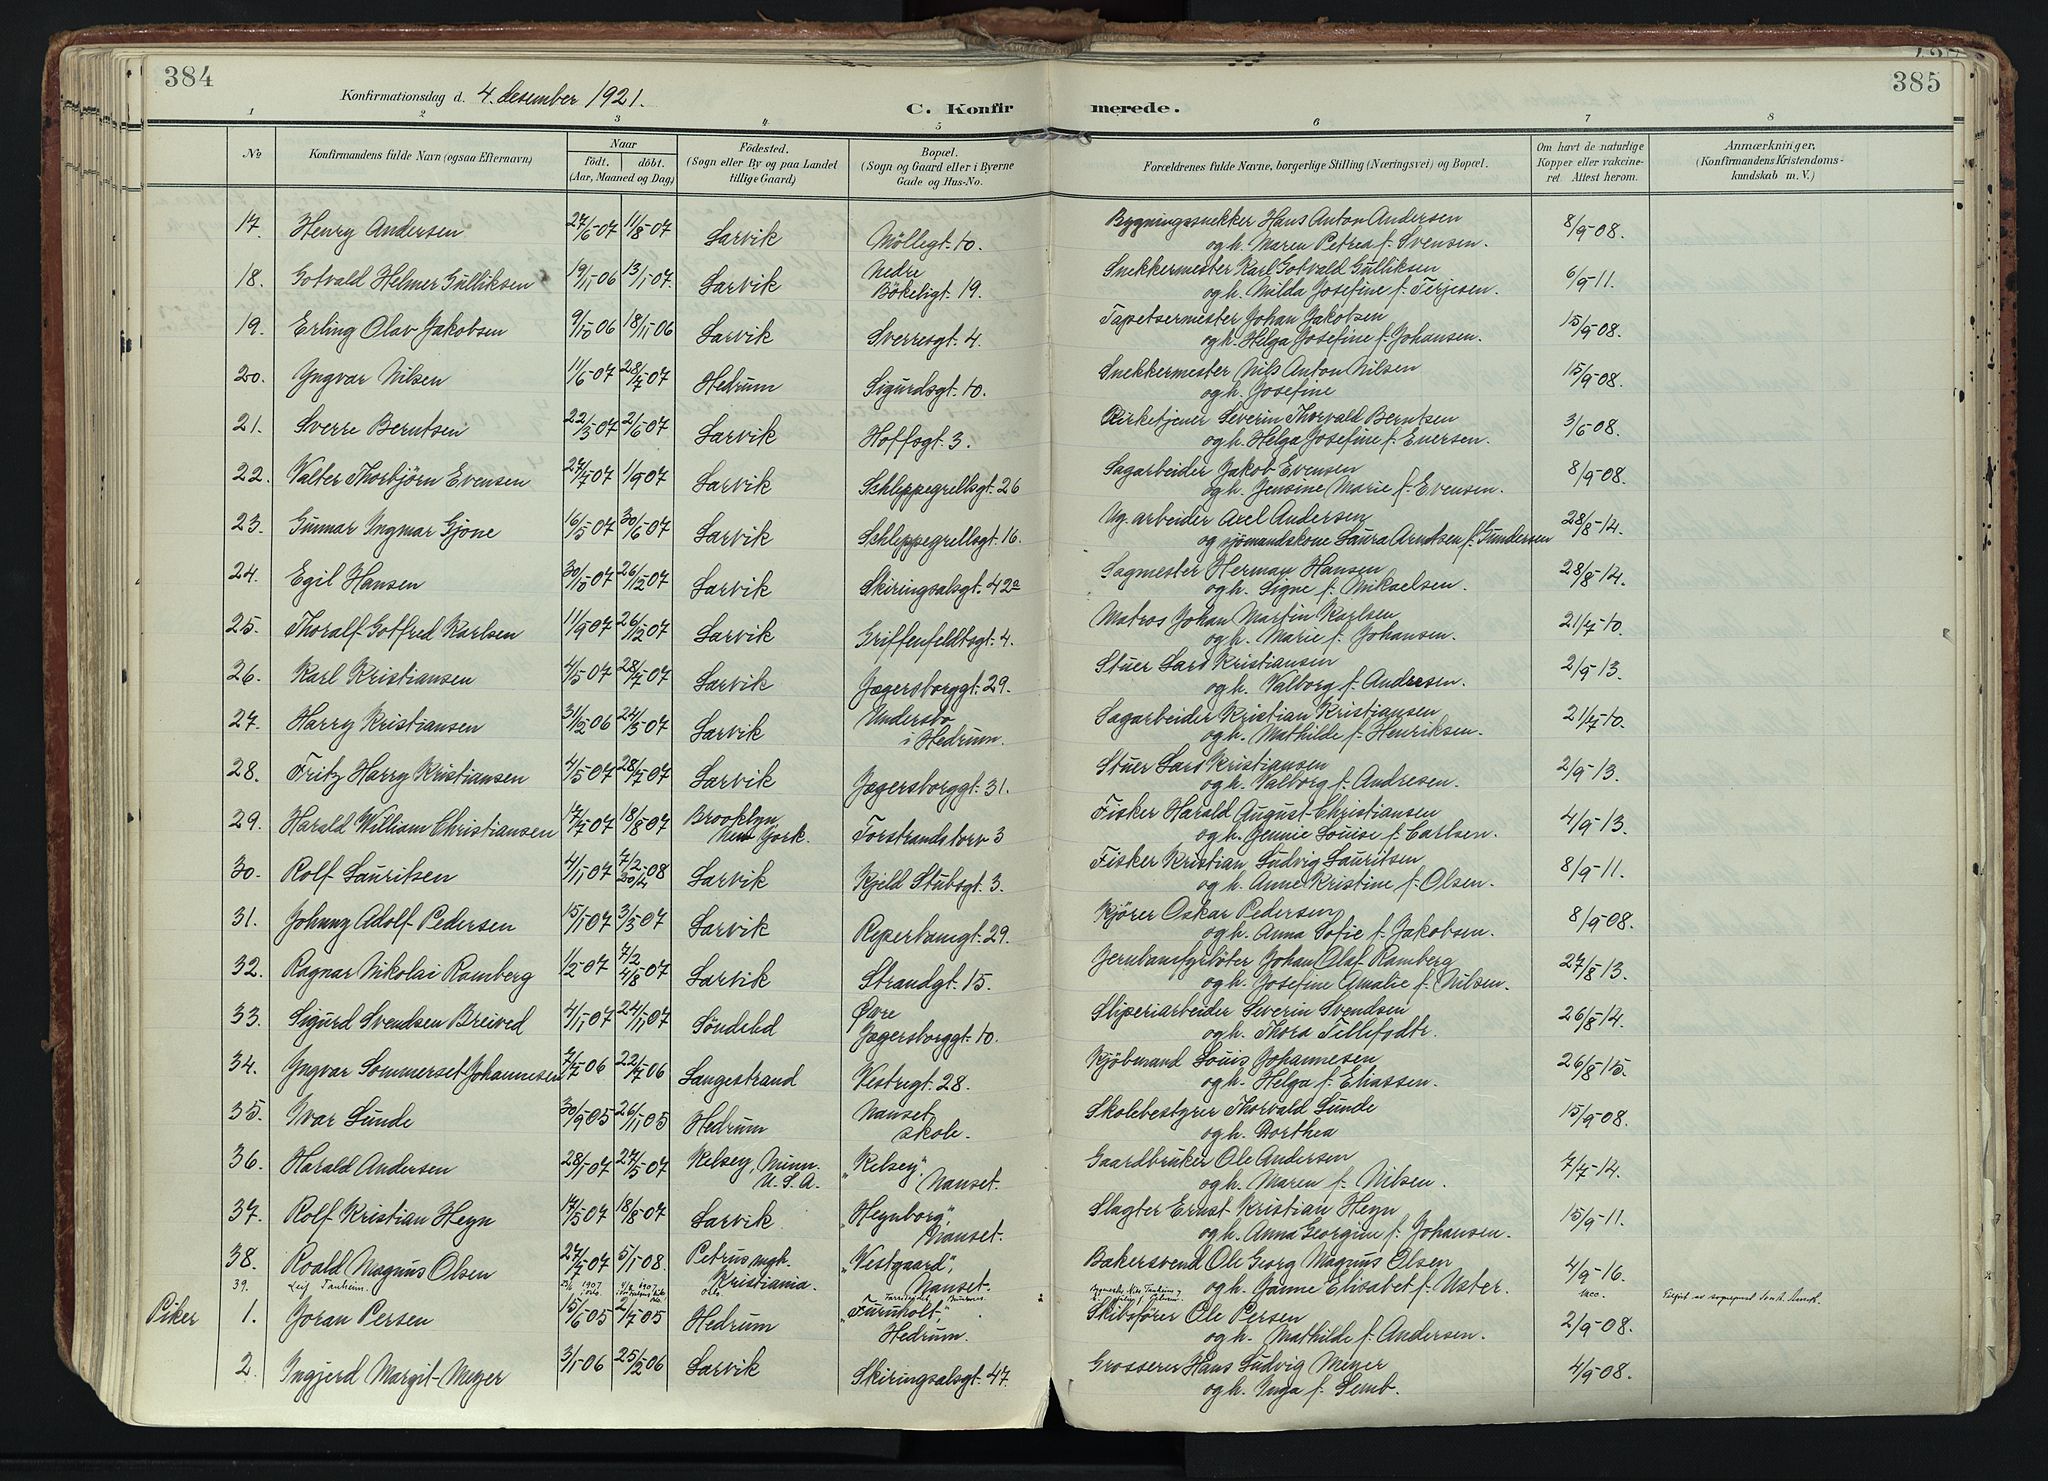 384
385
Konfirmationsdag d. 4. desember 1921.
C. Konfirmerede.
1 2 3 4 5 6 7 8
No
Konfirmandens fulde Navn (ogsaa Efternavn)
Naar
födt. döbt.
(Aar, Maaned og Dag)
Födested.
(Sogn eller By og paa Landet
tillige Gaard)
Bopæl.
(Sogn og Gaard eller i Byerne
Gade og Hus-No.
Forældrenes fulde Navne, borgerlige Stilling (Næringsvei) og Bopæl.
Om havt de naturlige
Kopper eller vakcine-
ret. Attest herom.
Anmærkninger,
(Konfirmandens Kristendoms-
kundskab m. V.)
17. Henry Andersen 27/6-07 11/8-07 Larvik Möllegt. 10. Bygningssnekker Hans Anton Andersen 8/9-08.
og h. Maren Petrea f. Svensen.
18. Gotvald Helmer Gulliksen 19/11-06 13/1-07. Larvik Nedre Bökeligt. 19. Snekkermester Karl Gotvald Gulliksen 6/9-11.
og h. Milda Josefine f. Terjesen.
19. Erling Olav Jakobsen 9/10-06 18/11-06 Larvik Sverresgt. 4. Tapetsermester Johan Jakobsen 15/9-08.
og h. Helga Josefine f. Johansen.
20. Yngvar Nilsen 11/6-07 28/7-07 Hedrum Sigurdsgt. 10. Snekkermester Nils Anton Nilsen 15/9-08.
og h. Josefine
21. Sverre Berntsen 22/3-07 2/6-07 Larvik Hoffsgt. 3. Kirketjener Severin Thorvald Berntsen 3/6-08.
og h. Helga Josefine f. Eversen.
22. Valter Thorbjörn Evensen 27/7-07 1/9-07 Larvik Schleppegrellsgt. 26 Sagarbeider Jakob Evensen 8/9-08.
og h. Jensine Marie f. Evensen.
23. Gunnar Ingmar Gjone 16/5-07 30/6-07 Larvik Schleppegrellsgt. 16. Ug. arbeider Axel Andersen 28/8-14.
og sjömandskone Laura Arntsen f. Gundersen
24. Egil Hansen 30/10-07 26/12-07 Larvik Skiringsalsgt. 42a Sagmester Herman Hansen 28/8-14.
og h. Signe f. Mikaelsen.
25. Thoralf Gotfred Karlsen 11/9-07 26/12-07 Larvik Griffenfeldtsgt. 4. Matros Johan Martin Karlsen 21/7-10.
og h. Marie f. Johansen.
26. Karl Kristiansen 4/5-07 28/7-07 Larvik Jægersborggt. 29. Stuer Lars Kristiansen 2/9-13.
og h. Valborg f. Andresen.
27. Harry Kristiansen 31/12-06 24/3-07 Larvik Undersbo i Hedrum. Sagarbeider Kristian Kristiansen 21/7-10.
og h. Mathilde f. Henriksen.
28. Fritz Harry Kristiansen 4/5-07 28/7-07 Larvik Jægersborggt. 31. Stuer Lars Kristiansen 2/9-13.
og h. Valborg f. Andresen.
29. Harald William Christiansen 17/7-07 18/8-07 Brooklyn New York. Torstrandstorv 3 Fisker Harald August Christiansen 4/9-13.
og h. Jennie Louise f. Carlsen.
30. Rolf Lauritsen 4/11-07 7/2-08 Larvik Kjeld Stubsgt. 3. Fisker Kristian Ludvig Lauritsen 8/9-11.
og h. Anne Kristine f. Olsen.
31. Johnny Adolf Pedersen 15/1-07 3/3-07 Larvik Reperbanegt. 29. Kjörer Oskar Pedersen 8/9-08.
og h. Anna Sofie f. Jakobsen.
32. Ragnar Nikolai Ramberg 1/2-07 7/2 4/8-07 Larvik Strandgt. 15. Jernbanefyrböter Johan Olaf Ramberg 27/8-13.
og h. Josefine Amalie f. Nilsen.
33. Sigurd Svendsen Breived 4/11-07 24/11-07 Söndeled Øvre Jægersborggt. 10. Sliperiarbeider Severin Svendsen 26/8-14.
og h. Thora Tellefsdtr.
34. Yngvar Sommerset Johannesen 7/7-06 22/7-06 Langestrand Vestregt. 28. Kjöbmand Louis Johannesen 26/8-15.
og h. Helga f. Eliassen.
35. Ivar Lunde 30/9-05 26/11-05 Hedrum Nanset skole. Skolebestyrer Thorvald Lunde 15/9-08.
og h. Dorthea
36. Harald Andersen 28/1-07 27/5-07 Kelsey, Minn. U.S.A. "Kelsey", Nanset. Gaardbruker Ole Andersen 7/7-14.
og h. Maren f. Nilsen.
37. Rolf Kristian Heyn 17/5-07 18/8-07 Larvik "Heynborg", Nanset. Slagter Ernst Kristian Heyn 15/9-11.
og h. Anna Georgine f. Johansen.
38. Roald Magnus Olsen 27/7-07 5/1-08. Petrus mgh. Kristiania. "Vestgaard", Nanset. Bakersvend Ole Georg Magnus Olsen 4/9-16.
og h. Janne Elisabet f. Uster.
39. Leif Tanheim.
Piker 1. Joran Persen 15/6-05 2/7-05 Hedrum "Furuholt", Hedrum. Skibsförer Ole Persen 2/9-08.
og h. Mathilde f. Andersen.
2. Ingjerd Margit Meyer 3/1-06 25/2-06 Larvik Skiringsalsgt. 47. Grosserer Hans Ludvig Meyer 4/9-08.
og h. Inga f. Semb.